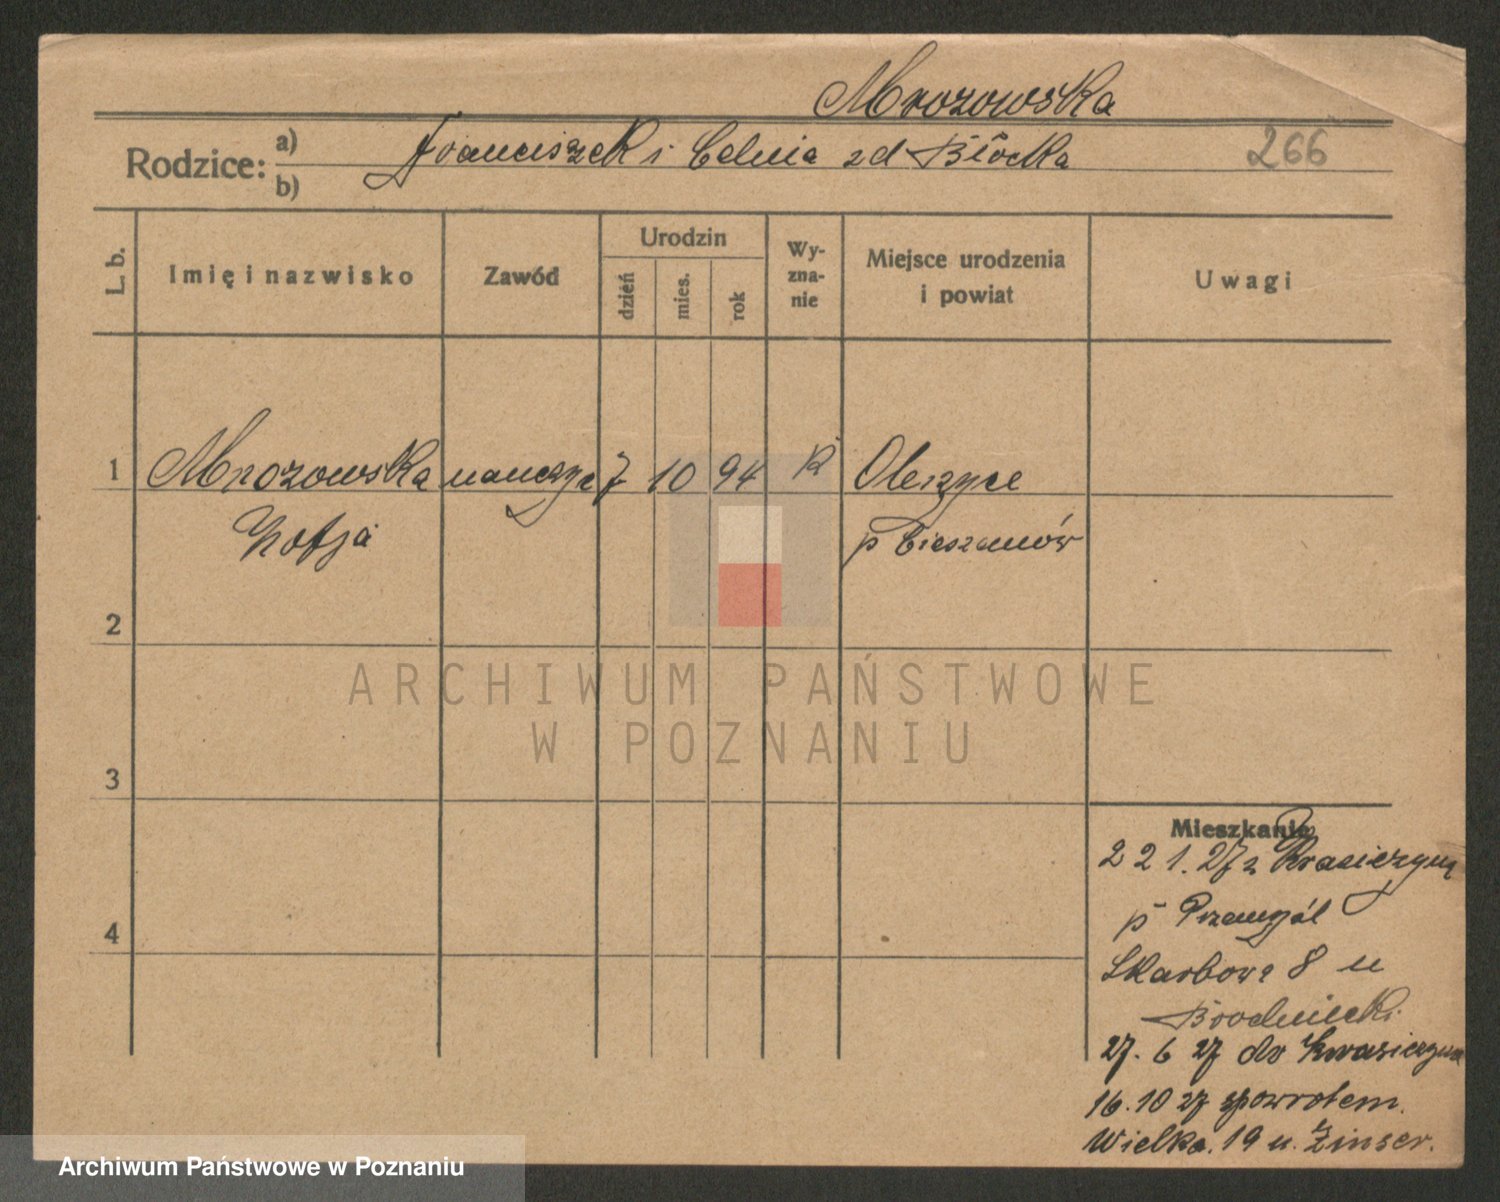 Mrozowska
Rodzice: a) Franciszek i Celina zd Błocka 266
b)
L. b. Imię i nazwisko Zawód Urodzin dzień mies. rok Wy-zna-nie Miejsce urodzenia i powiat Uwagi
1 Mrozowska nauczyc 7 10 94 rk Oleszyce
Zofja p Cieszanów
2
3
4
Mieszkanie
22 1. 27 z Krasiczyna
p Przemyśl
Skarbowa 8 u
Brodnicki.
27. 6 27 do Krasiczyna
16. 10 27 spowrotem.
Wielka. 19 u. Zinser.
ARCHIWUM PAŃSTWOWE
W POZNANIU
Archiwum Państwowe w Poznaniu